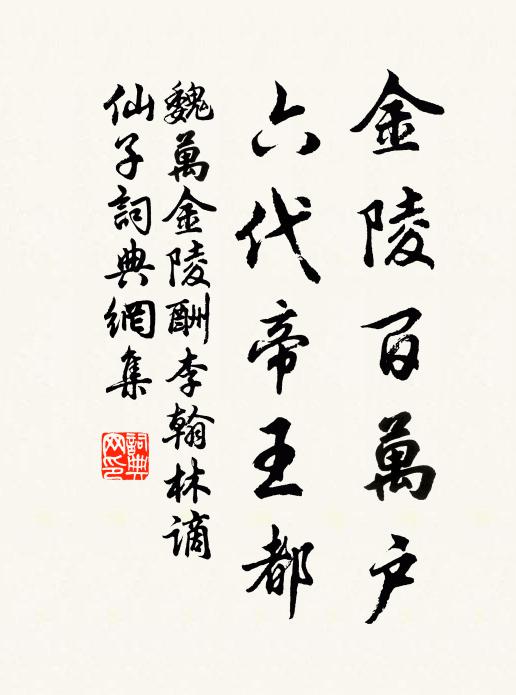 金陵百萬户
六代帝王都
魏萬金陵酬李翰林謫
仙子詞典網集
詞典网印